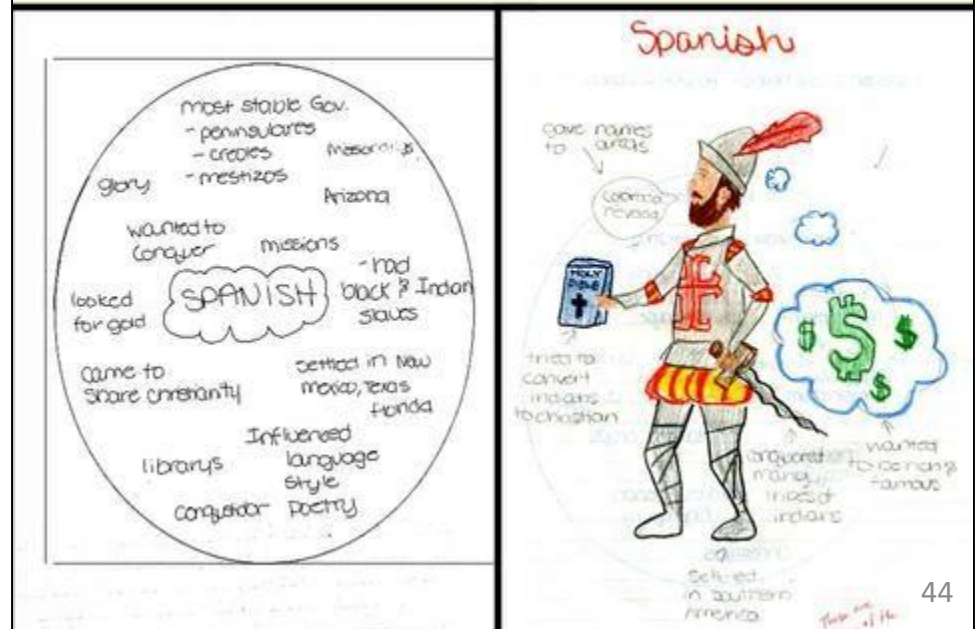 most stable Gov.
- peninsulares
- creoles
- mestizos
glory
Arizona
wanted to
conquer
missions
SPANISH
- had
black & Indian
slaves
looked
for gold
came to
share christianity
settled in New
mexico, texas
florida
Influenced
language
style
poetry
librarys
conquistdor
Spanish
gave names
to areas
colorado
nevada
HOLY
BIBLE
$
$
$
$
tried to
convert
indians
to christian
conquered
many
tribes of
indians
wanted
to be rich &
famous
settled
in southern
America
44